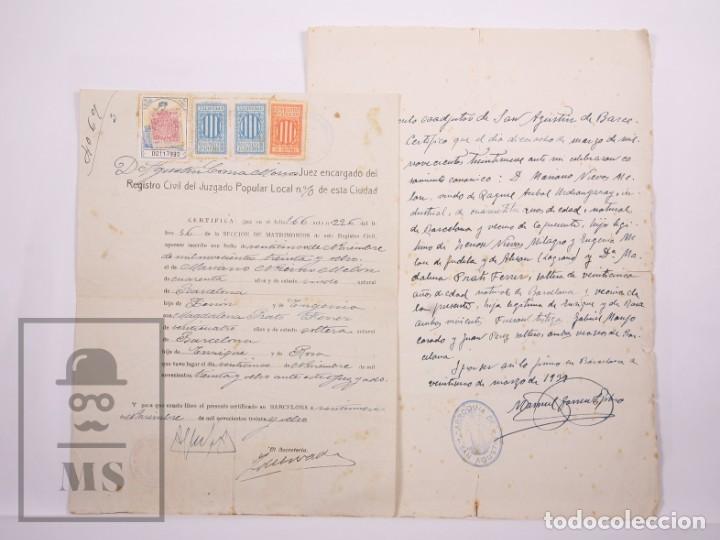 4069
3
D2117993
D. Agustin Juez encargado del
Registro Civil del Juzgado Popular Local nº 3 de esta Ciudad
CERTIFICA: que en el folio 166 acta n. 226 del li-
bro 56 de la SECCION DE MATRIMONIOS de este Registro Civil,
aparece inscrito con fecha de Noviembre
de mil novecientos treinta y ocho
el de Mariano Nieves Melon
de cuarenta años y de estado viudo natural
de Barcelona
hijo de Fermin y de Eugenia
con Magdalena Prats Ferrer
de veinticuatro años y de estado soltera natural
de Barcelona
hija de Enrique y de Rosa
que tuvo lugar el dia veintiuno de Noviembre de mil
novecientos treinta y ocho ante este juzgado
Y para que conste libro el presente certificado en BARCELONA a
de Noviembre de mil novecientos treinta y ocho
El Secretario,
coadjutor de San Agustín de Barce-
Certifico que el día dieciocho de marzo de mil
novecientos treintinueve ante mi celebraron ca-
samiento canonico: D. Mariano Nieves Me-
lon, viudo de Raquel, in-
dustrial, de cuarenta años de edad, natural
de Barcelona y vecino de la presente, hijo legi-
timo de Fermon Nieves Milagro y Eugenia Me-
lon de Tudela y de (Logroño) y Dª Ma-
dalena Prats Ferrer, soltera de veinticinco
años de edad natural de Barcelona y vecina de
la presente, hija legitima de Enrique y de Rosa
ambos vivientes. Fueron testigos Gabriel
casado y Juan Perez soltero, ambos vecinos de Bar-
celona
Y por ser asi lo firmo en Barcelona a
veintiuno de marzo de 1939
Manuel
PARROQUIA DE SAN AGUSTIN
MS
todocoleccion
todocoleccion.net